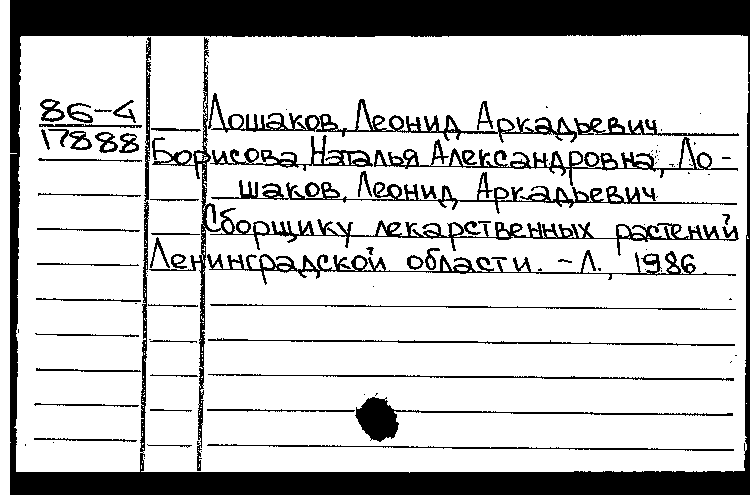 86-4
17888
Лошаков, Леонид Аркадьевич
Борисова, Наталья Александровна, Ло-
шаков, Леонид Аркадьевич
Сборщику лекарственных растений
Ленинградской области. - Л., 1986